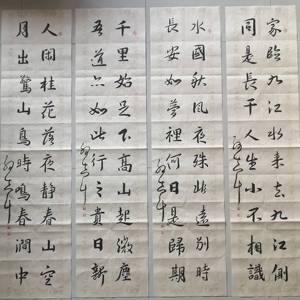 家臨九江水来去九江側
同是長干人生小不相識
水國秋風夜殊非遠別時
長安如夢裡何日是歸期
千里始足下高山起微塵
吾道亦如此行之貴日新
人閑桂花落夜静春山空
月出驚山鳥時鳴春澗中